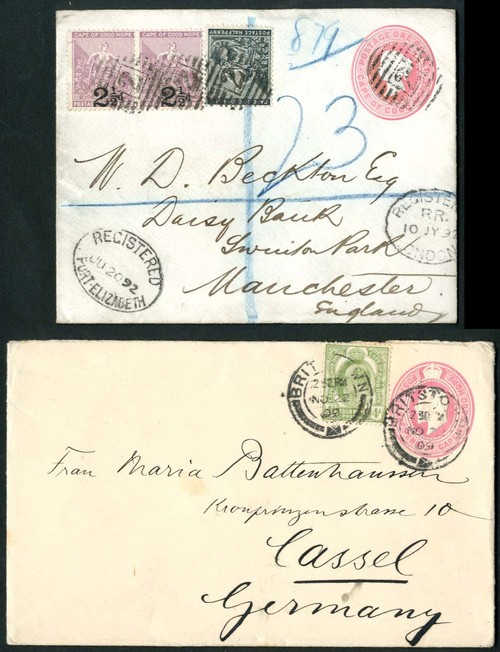 CAPE OF GOOD HOPE CAPE OF GOOD HOPE
2½ 2½
POSTAGE HALFPENNY
879
POSTAGE ONE
CAPE OF GOOD
23
W. D. Beckton Esq
Daisy Bank
Swinton Park
Manchester
England
REGISTERED
JU 20 92
PORT-ELIZABETH
REGISTERED
R.R.
10 JY 92
LONDON
BRITSTOWN
NO 22
09
BRITSTO
NO
09
Frau Maria Battenhaussen
Kronprinzenstrasse 10
Cassel
Germany